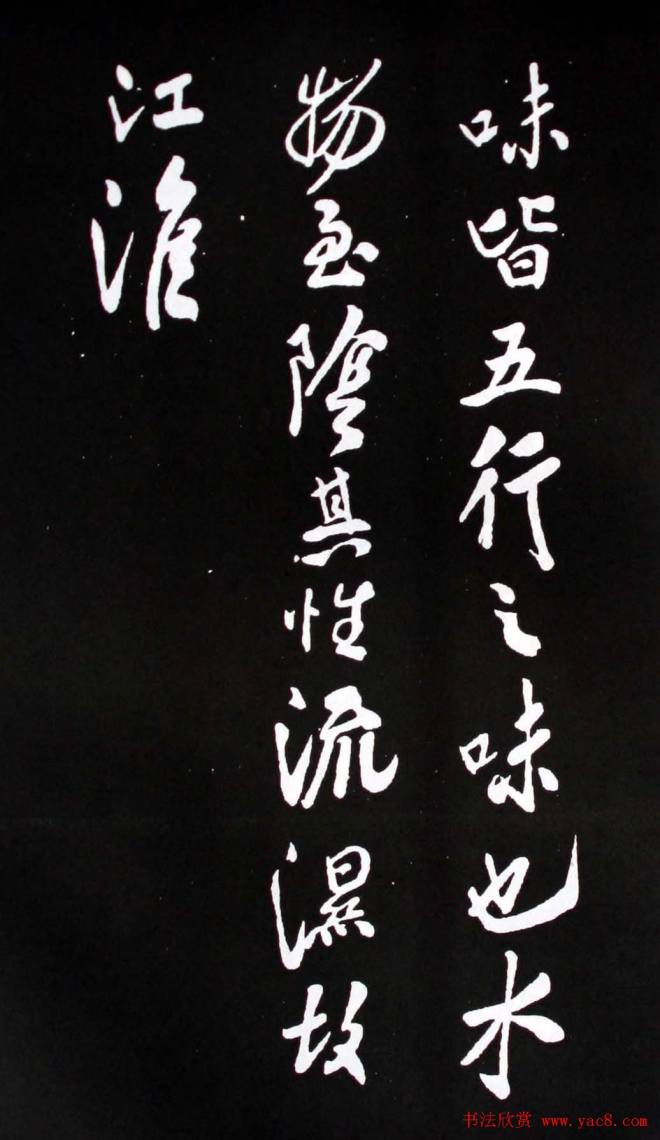 味皆五行之味也水
物至陰其性流濕故
江淮
书法欣赏 www.yac8.com